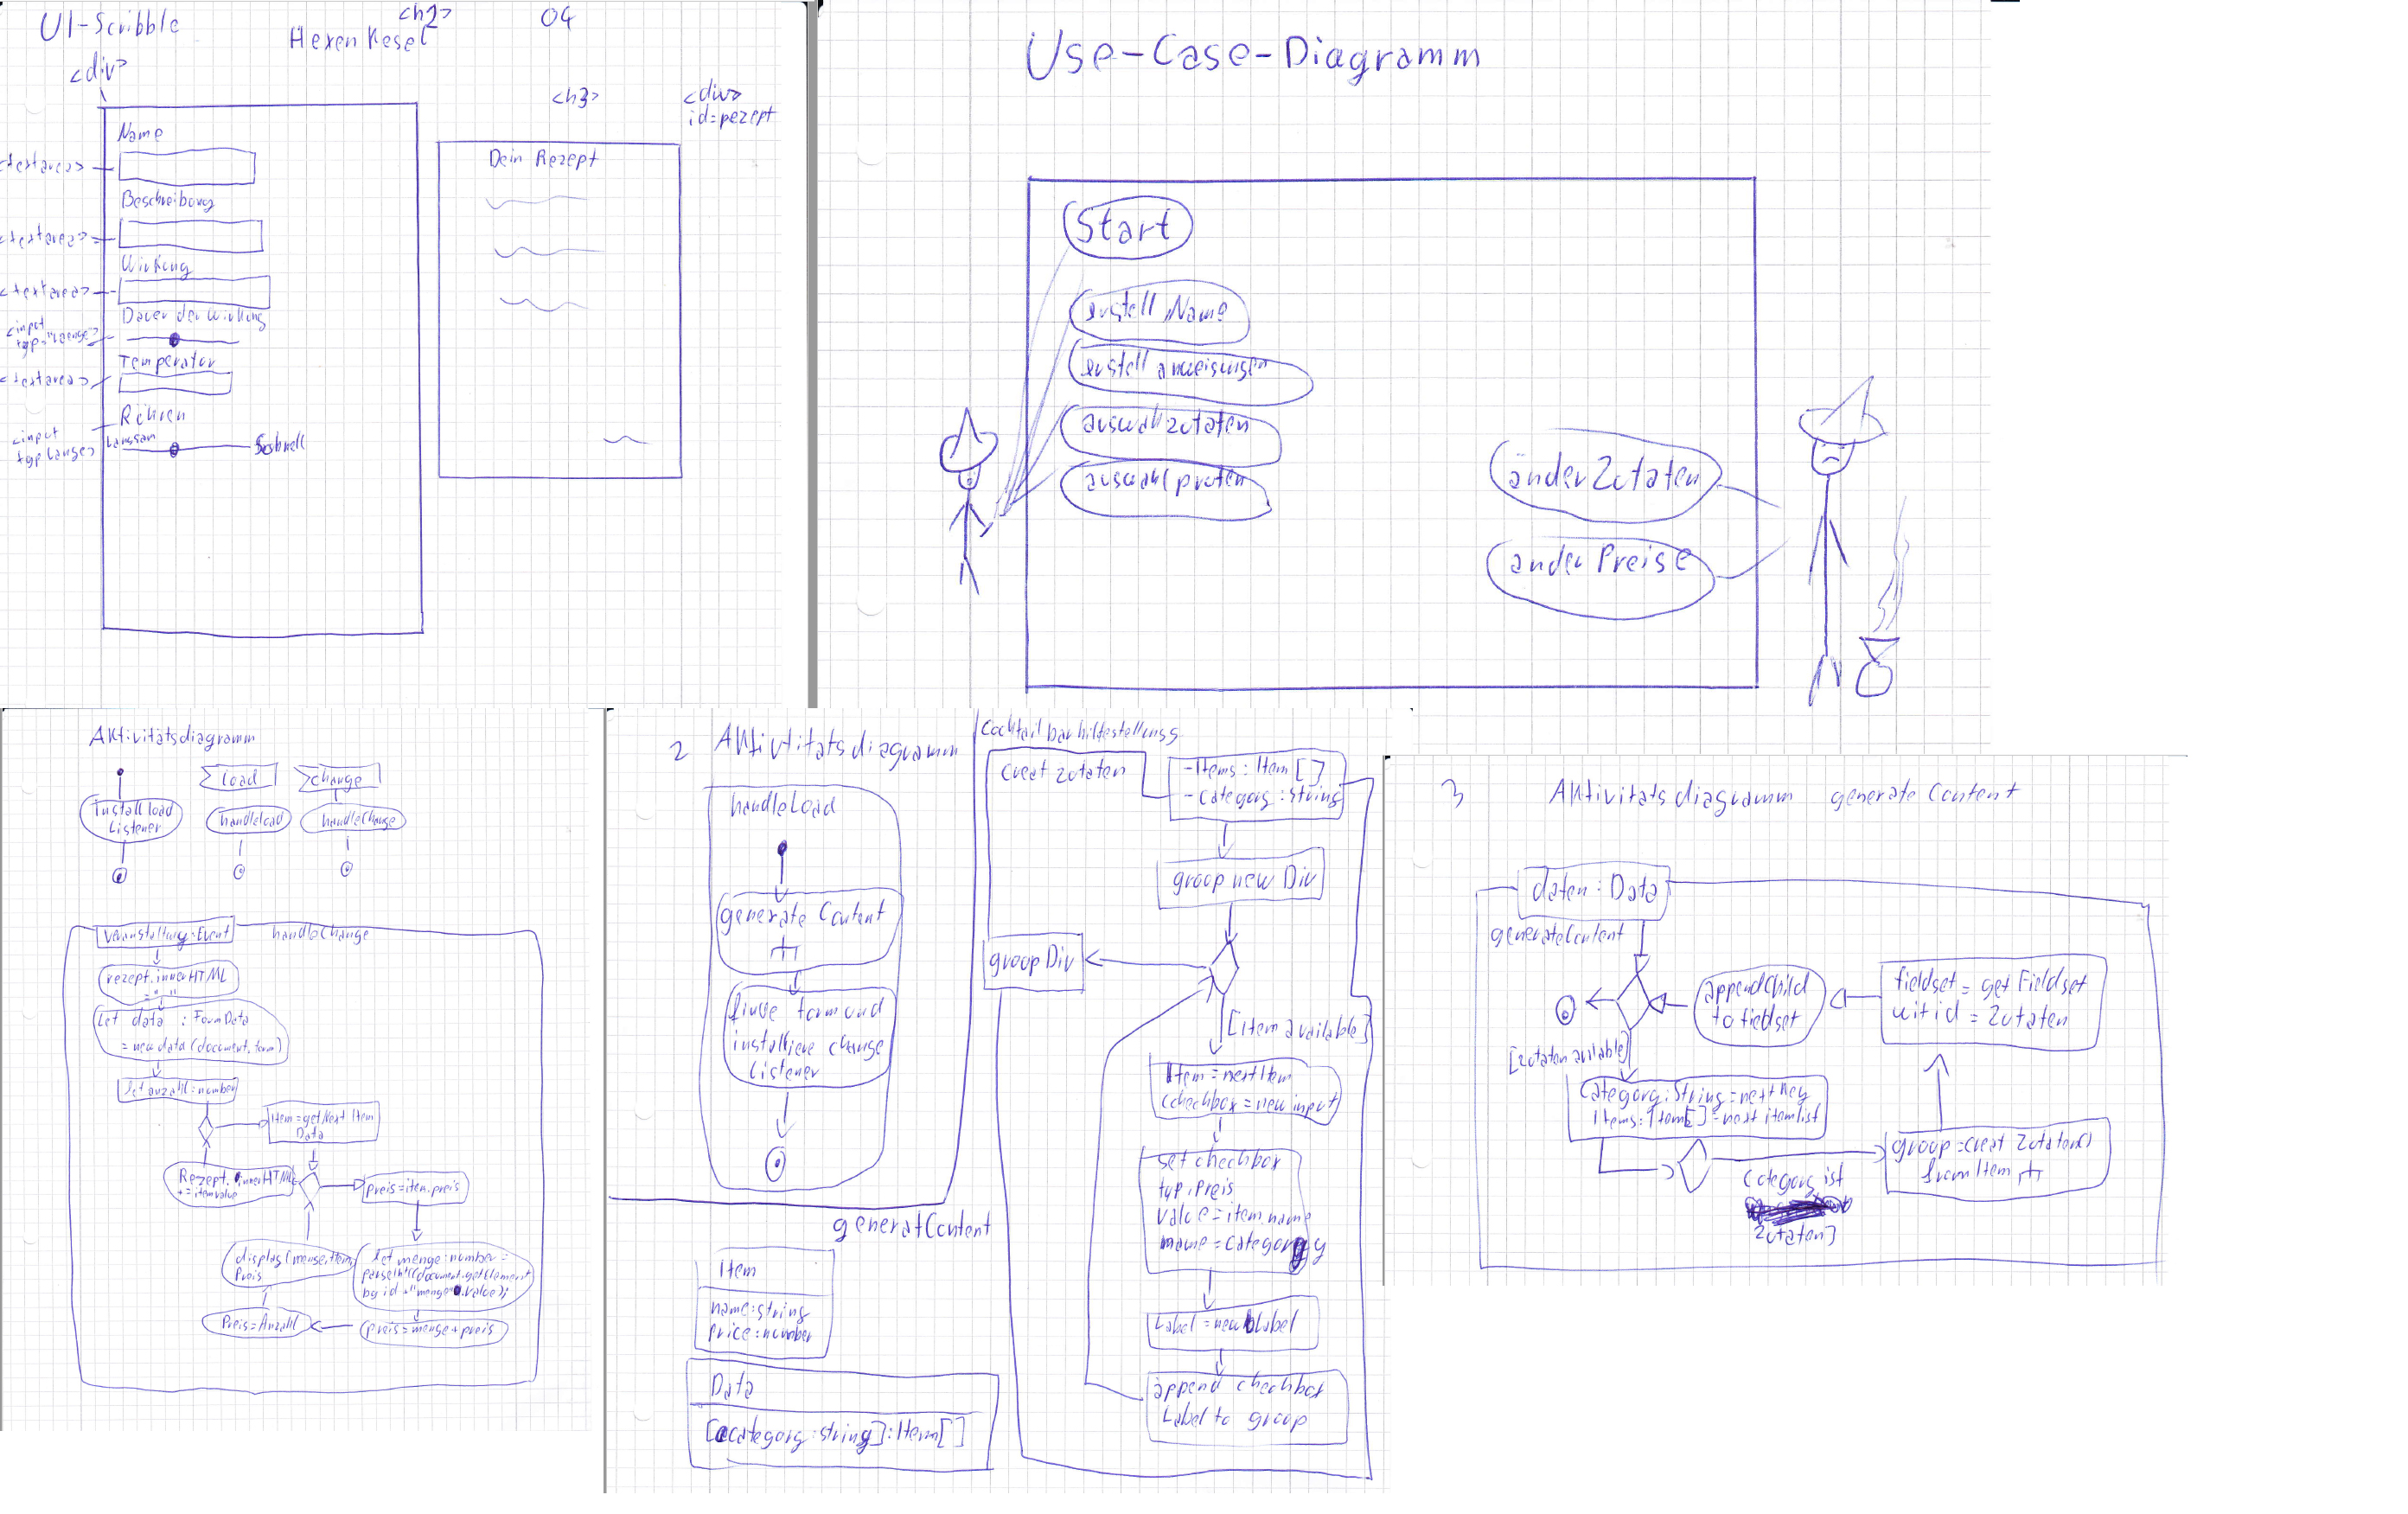 UI-Scribble
<h1>
04
Hexen Kesel
<div>
<h3>
<div>
id=rezept
Name
<textarea>
Beschreibung
<textarea>
Wirkung
<textarea>
Dauer der Wirkung
<input
Temperatur
<textarea>
Rühren
<input
Langsam
Schnell
Dein Rezept
Use-Case-Diagramm
Start
erstell Name
erstell anweisungen
auswahl zutaten
auswahl
änder Zutaten
änder Preise
Aktivitätsdiagramm
load
change
Install load
Listener
handleload
handleChange
Veranstaltung:Event
handleChange
rezept.innerHTML
= " "
let data : FormData
= new data (document.form)
let anzahl:number
Item=getNext Item
Data
Rezept.innerHTML
+= itemvalue
preis=item.preis
display(menge,item,
Preis
let menge:number =
parseInt(document.getElement
by id "menge".value);
Preis=Anzahl
preis=menge*preis
2 Aktivitatsdiagramm
handleLoad
generate Content
finde form und
installiere change
Listener
generatContent
Item
name:string
price:number
Data
[category:string]:Item[]
Cocktailbar hilfestellung
Creat zutaten
-Items: Item[]
-Category:String
group new Div
group Div
[Item available]
Item=nextItem
checkbox=new input
set checkbox
typ, Preis
value=item.name
name=category
Label=new Label
append checkbox
Label to group
3 Aktivitatsdiagramm generate Content
daten: Data
generateContent
appendChild
to fieldset
fieldset = get Fieldset
wit id = Zutaten
[zutaten avilable]
Category:String=next Key
Items:Item[]=next itemlist
group=creat Zutaten()
from Item
Category ist
Zutaten]